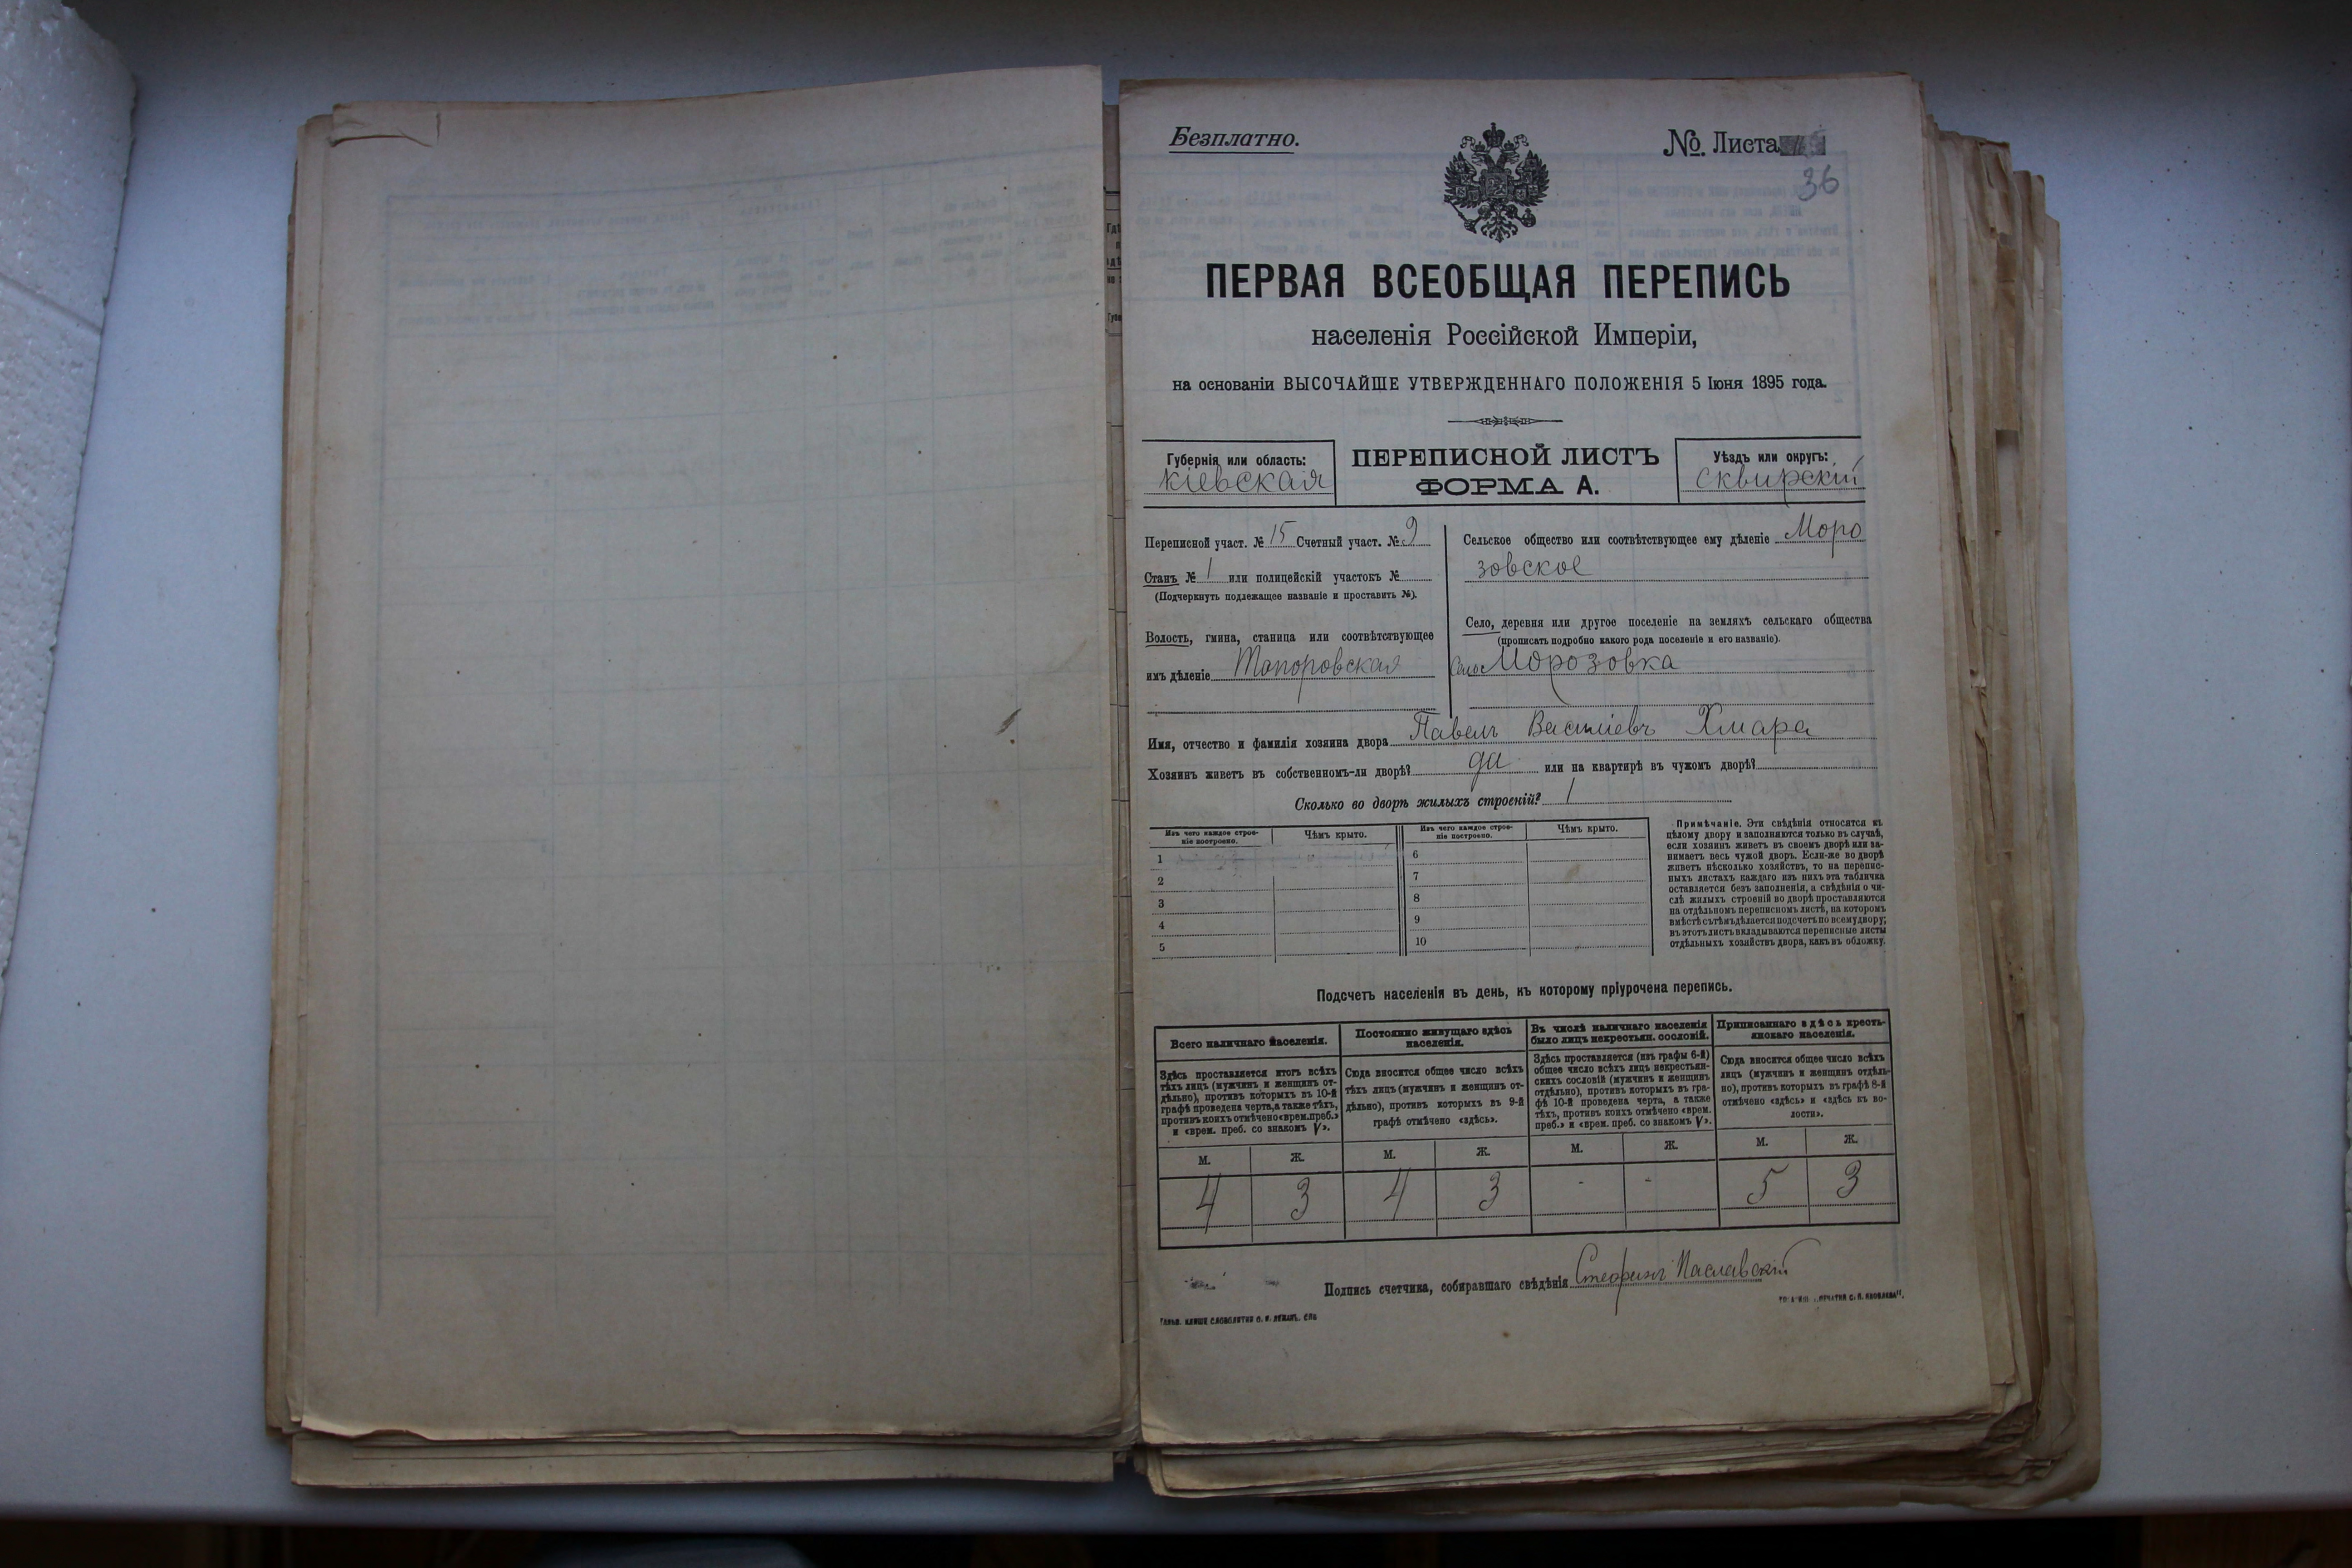 Безплатно.
№. Листа
36
ПЕРВАЯ ВСЕОБЩАЯ ПЕРЕПИСЬ
населенія Россійской Имперіи,
на основаніи ВЫСОЧАЙШЕ УТВЕРЖДЕННАГО ПОЛОЖЕНІЯ 5 Іюня 1895 года.
Губернія или область:
Кіевская
ПЕРЕПИСНОЙ ЛИСТЪ
ФОРМА А.
Уѣздъ или округъ:
Сквирскій
Переписной участ. № 15 Счетный участ. № 9
Станъ № 1 или полицейскій участокъ №
(Подчеркнуть подлежащее названіе и проставить №).
Волость, гмина, станица или соотвѣтствующее
имъ дѣленіе Топоровская
Сельское общество или соотвѣтствующее ему дѣленіе Моро
зовское
Село, деревня или другое поселеніе на земляхъ сельскаго общества
(прописать подробно какого рода поселеніе и его названіе).
Село Морозовка
Имя, отчество и фамилія хозяина двора Павелъ Васильевъ Хмара
Хозяинъ живетъ въ собственномъ-ли дворѣ? да или на квартирѣ въ чужомъ дворѣ?
Сколько во дворѣ жилыхъ строеній? 1
Изъ чего каждое строе-
ніе построено.
Чѣмъ крыто.
Изъ чего каждое строе-
ніе построено.
Чѣмъ крыто.
1
2
3
4
5
6
7
8
9
10
Примѣчаніе. Эти свѣдѣнія относятся къ
цѣлому двору и заполняются только въ случаѣ,
если хозяинъ живетъ въ своемъ дворѣ или за-
нимаетъ весь чужой дворъ. Если-же во дворѣ
живетъ нѣсколько хозяйствъ, то на перепис-
ныхъ листахъ каждаго изъ нихъ эта табличка
оставляется безъ заполненія, а свѣдѣнія о чи-
слѣ жилыхъ строеній во дворѣ проставляются
на отдѣльномъ переписномъ листѣ, на которомъ
вмѣстѣ съ тѣмъ дѣлается подсчетъ по всему двору;
въ этотъ листъ вкладываются переписные листы
отдѣльныхъ хозяйствъ двора, какъ въ обложку.
Подсчетъ населенія въ день, къ которому пріурочена перепись.
Всего наличнаго населенія.
Здѣсь проставляется итогъ всѣхъ
тѣхъ лицъ (мужчинъ и женщинъ от-
дѣльно), противъ которыхъ въ 10-й
графѣ проведена черта, а также тѣхъ,
противъ коихъ отмѣчено «врем. преб.»
и «врем. преб. со знакомъ V».
Постоянно живущаго здѣсь
населенія.
Сюда вносится общее число всѣхъ
тѣхъ лицъ (мужчинъ и женщинъ от-
дѣльно), противъ которыхъ въ 9-й
графѣ отмѣчено «здѣсь».
Въ числѣ наличнаго населенія
было лицъ некрестьян. сословій.
Здѣсь проставляется (изъ графы 6-й)
общее число всѣхъ лицъ некрестьян-
скихъ сословій (мужчинъ и женщинъ
отдѣльно), противъ которыхъ въ гра-
фѣ 10-й проведена черта, а также
тѣхъ, противъ коихъ отмѣчено «врем.
преб.» и «врем. преб. со знакомъ V».
Приписаннаго здѣсь кресть-
янскаго населенія.
Сюда вносится общее число всѣхъ
лицъ (мужчинъ и женщинъ отдѣль-
но), противъ которыхъ въ графѣ 8-й
отмѣчено «здѣсь» и «здѣсь къ во-
лости».
М. Ж. М. Ж. М. Ж. М. Ж.
4 3 4 3 - - 5 3
Подпись счетчика, собиравшаго свѣдѣнія Стефанъ Паславскій